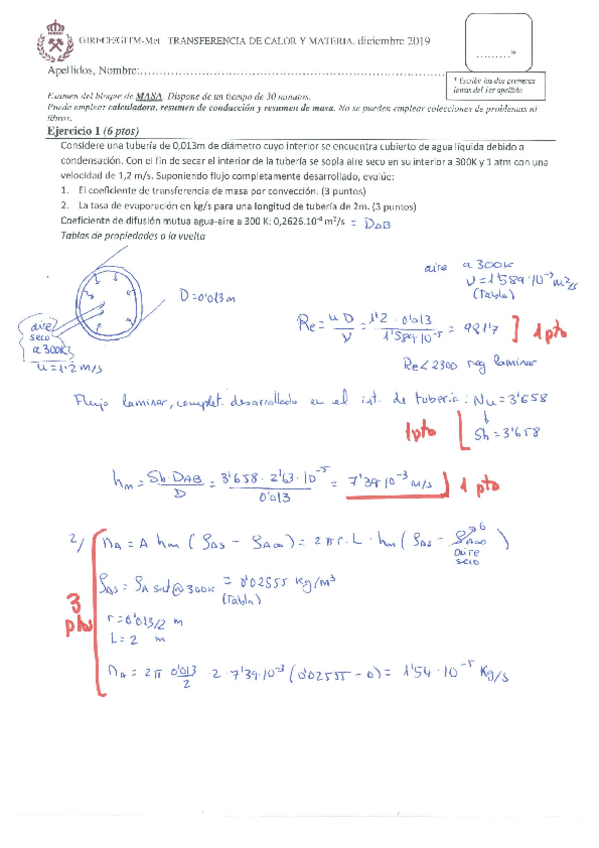 GIRECE/GITM-Met TRANSFERENCIA DE CALOR Y MATERIA, diciembre 2019
.........*
Apellidos, Nombre:
* Escribir las dos primeras letras del 1er apellido
Examen del bloque de MASA. Dispone de un tiempo de 30 minutos.
Puede emplear calculadora, resumen de conducción y resumen de masa. No se pueden emplear colecciones de problemas ni
libros.
Ejercicio 1 (6 ptos)
Considere una tubería de 0,013m de diámetro cuyo interior se encuentra cubierto de agua líquida debido a
condensación. Con el fin de secar el interior de la tubería se sopla aire seco en su interior a 300K y 1 atm con una
velocidad de 1,2 m/s. Suponiendo flujo completamente desarrollado, evalúe:
1. El coeficiente de transferencia de masa por convección. (3 puntos)
2. La tasa de evaporación en kg/s para una longitud de tubería de 2m. (3 puntos)
Coeficiente de difusión mutua agua-aire a 300 K: 0,2626.10⁻⁴ m²/s = DAB
Tablas de propiedades a la vuelta
aire a 300K
ν = 1'589·10⁻⁵ m²/s
(Tabla)
D = 0'013 m
aire
seco
a 300K
u = 1'2 m/s
Re = u D / ν = 1'2 · 0'013 / 1'589·10⁻⁵ = 981'7 ] 1 pto
Re < 2300 reg laminar
Flujo laminar, complet. desarrollado en el int. de tubería: Nu = 3'658
↓
1 pto [ Sh = 3'658
hm = Sh·DAB / D = 3'658 · 2'63·10⁻⁵ / 0'013 = 7'39·10⁻³ m/s ] 1 pto
2/ nA = A hm (ρAS − ρA∞) = 2πr·L·hm (ρAS − ρA∞)
aire
seco
ρAS = ρA sat@300K = 0'02555 Kg/m³
(Tabla)
3 ptos
r = 0'013/2 m
L = 2 m
nA = 2π 0'013/2 · 2 · 7'39·10⁻³ (0'02555 − 0) = 1'54·10⁻⁵ Kg/s